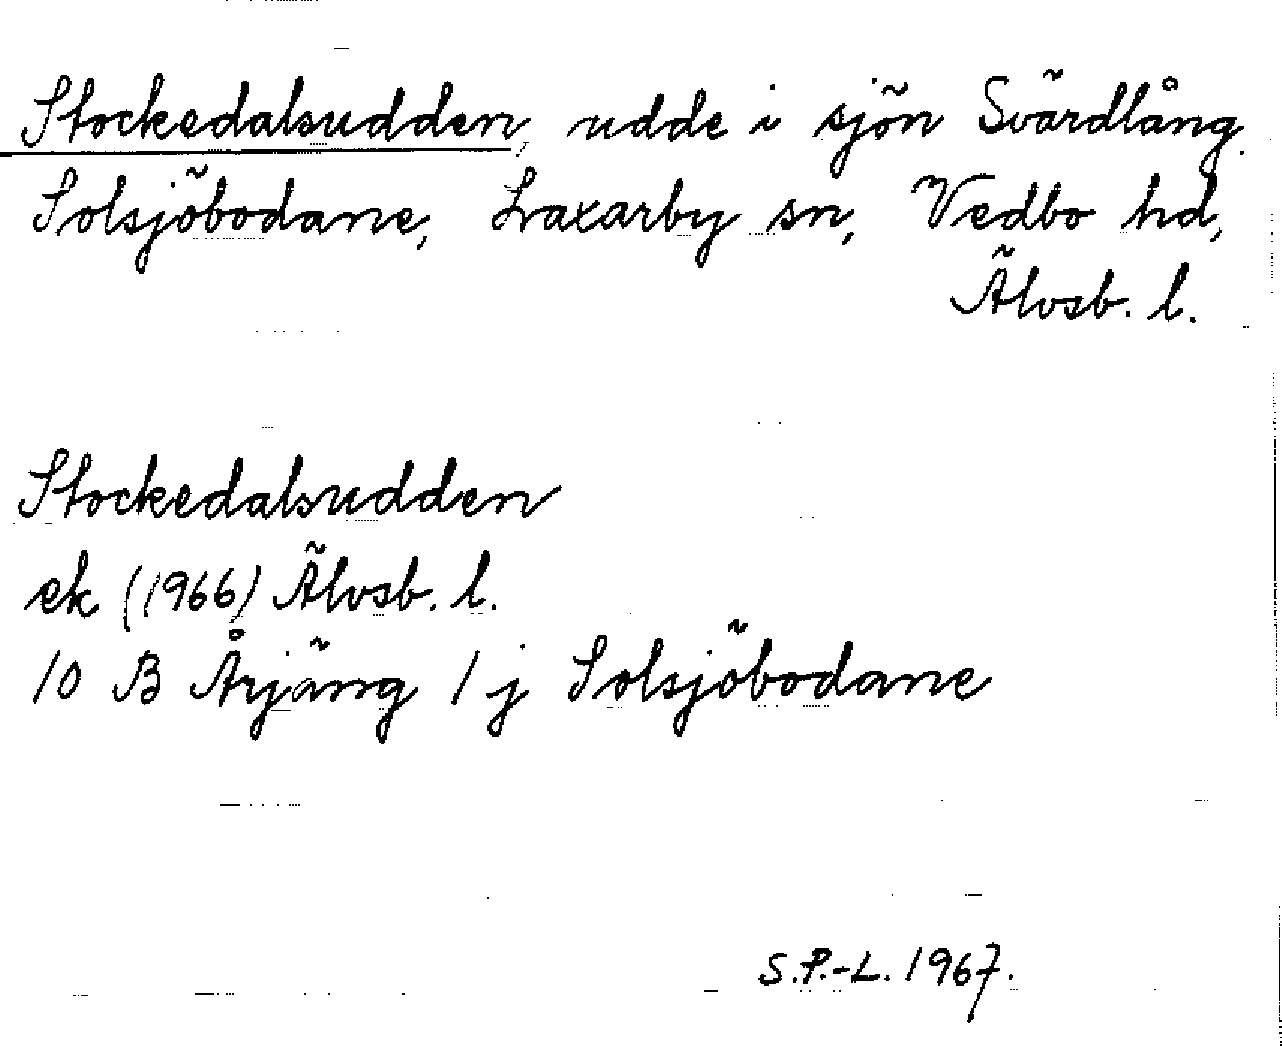 Stockedalsudden, udde i sjön Svärdlång.
Solsjöbodane, Laxarby sn, Vedbo hd,
Älvsb. l.
Stockedalsudden
ek (1966) Älvsb. l.
10 B Årjäng 1 j Solsjöbodane
S.P.-L. 1967.